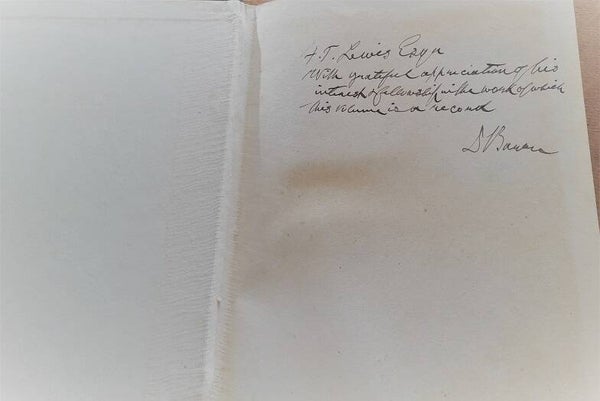 F. T. Lewis Esqr
With grateful appreciation of his
interest & fellowship in the work of which
this volume is a record